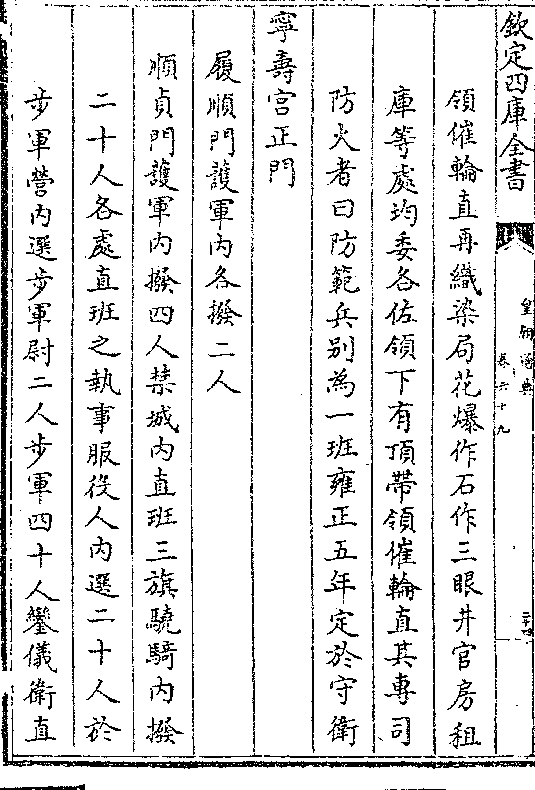 欽定四庫全書
皇朝通典
卷六十九
領催輪直再織染局花爆作石作三眼井官房租
庫等處均委各佐領下有頂帶領催輪直其專司
防火者曰防範兵別為一班雍正五年定於守衛
寧壽宮正門
履順門護軍內各撥二人
順貞門護軍內撥四人禁城內直班三旗驍騎內撥
二十人各處直班之執事服役人內選二十人於
步軍營內選步軍尉二人步軍四十人鑾儀衛直